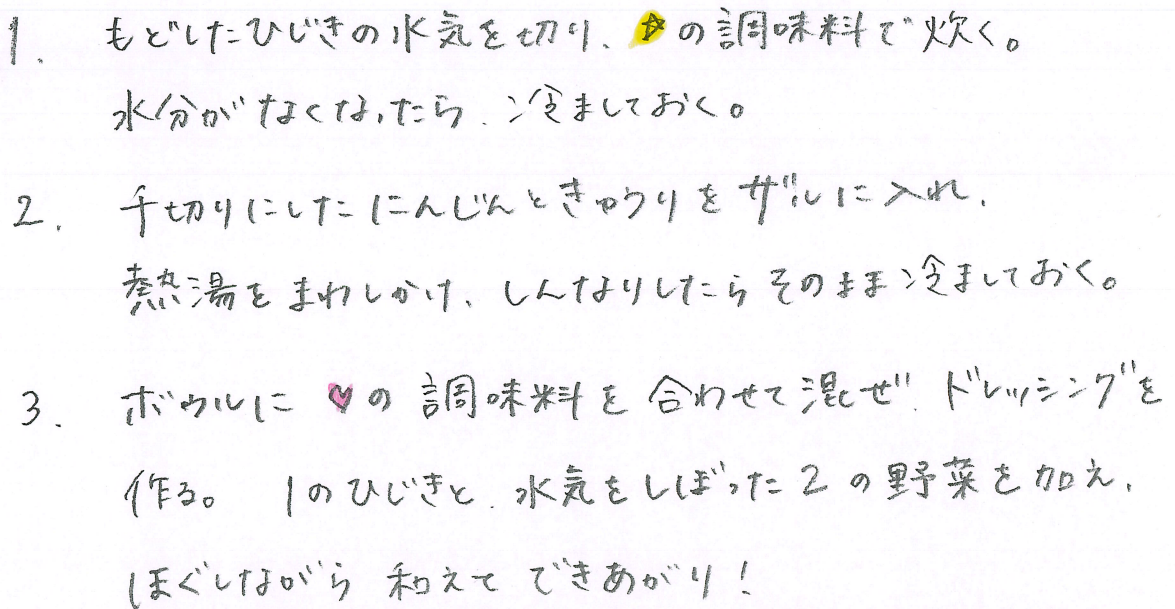 1. もどしたひじきの水気を切り、☆の調味料で炊く。
水分がなくなったら、冷ましておく。
2. 千切りにしたにんじんときゅうりをザルに入れ、
熱湯をまわしかけ、しんなりしたらそのまま冷ましておく。
3. ボウルに♡の調味料を合わせて混ぜ、ドレッシングを
作る。1のひじきと、水気をしぼった2の野菜を加え、
ほぐしながら和えてできあがり！